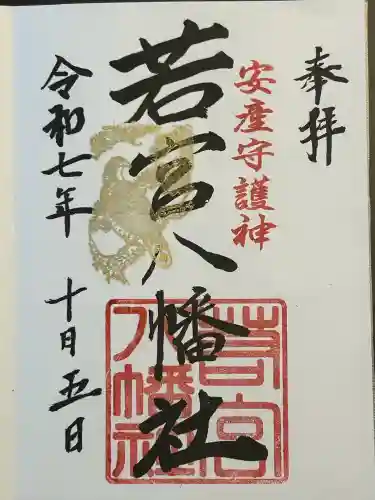 奉拝
安産守護神
若宮八幡社
若宮
八幡社
令和七年 十日五日